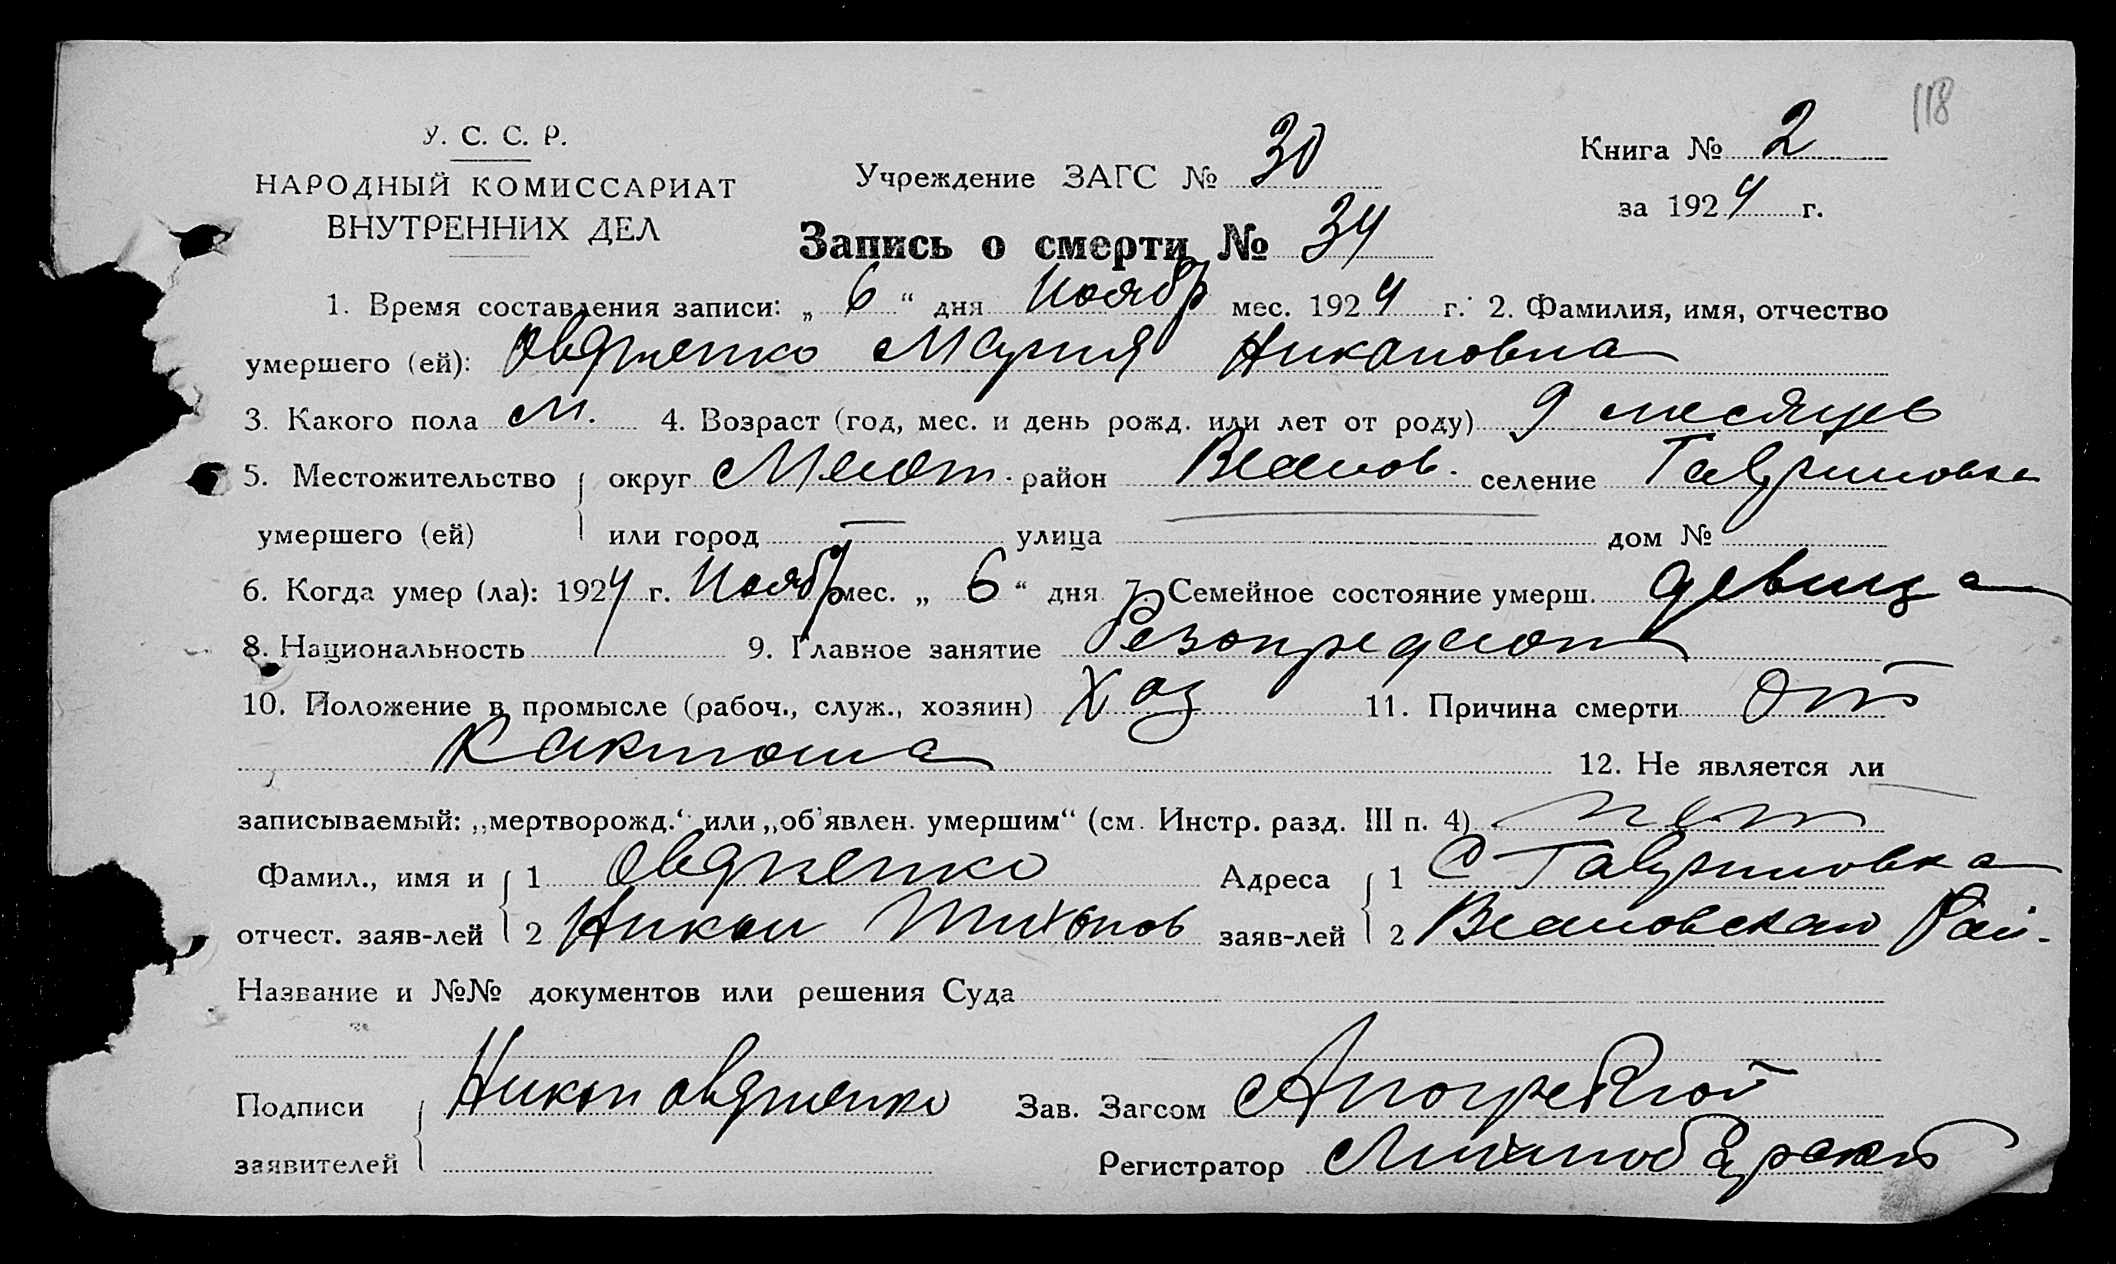 118
У. С. С. Р.
НАРОДНЫЙ КОМИССАРИАТ
ВНУТРЕННИХ ДЕЛ
Учреждение ЗАГС № 30
Книга № 2
за 1924 г.
Запись о смерти № 34
1. Время составления записи: „ 6 “ дня Ноябр мес. 1924 г. 2. Фамилия, имя, отчество
умершего (ей): Овдиенко Мария Никоновна
3. Какого пола м. 4. Возраст (год, мес. и день рожд. или лет от роду) 9 месяцев
5. Местожительство округ Мелит. район селение Гавриловка
умершего (ей) или город — улица — дом №
6. Когда умер (ла): 1924 г. Ноябр мес. „ 6 “ дня 7. Семейное состояние умерш. девица
8. Национальность 9. Главное занятие
10. Положение в промысле (рабоч., служ., хозяин) Хоз 11. Причина смерти От
12. Не является ли
записываемый: „мертворожд.“ или „об'явлен. умершим“ (см. Инстр. разд. III п. 4) нет
Фамил., имя и 1 Овдиенко Адреса 1 С Гавриловка
отчест. заяв-лей 2 Никон Тихонов заяв-лей 2 Рай.
Название и №№ документов или решения Суда
Подписи Никон Овдиенко Зав. Загсом
заявителей Регистратор